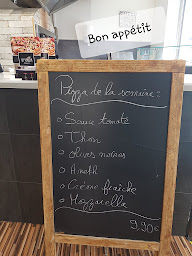 Bon appétit
Pizza de la semaine :
o Sauce tomate
o Thon
o olives noires
o Aneth
o Crème fraîche
o Mozzarella
9,90€